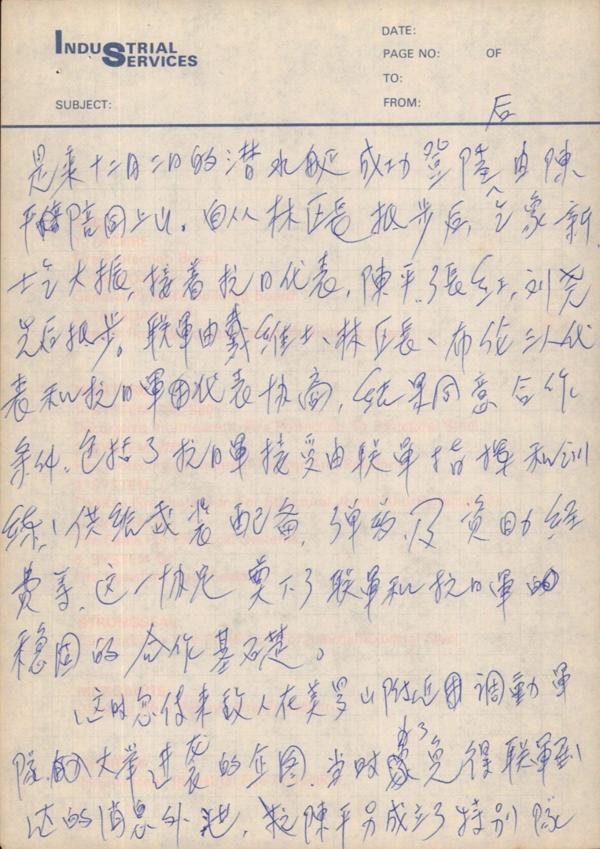 INDUSTRIAL
SERVICES
DATE:
PAGE NO: OF
TO:
FROM:
SUBJECT:
后
是乘十二月二日的潜水艇成功登陸由陳
平陪同上山。自从林区長报步后,气象新,
士气大振,接着抗日代表,陳平、張红、刘尧
先后报步。联軍由戴維士、林区長、布伦三人代
表和抗日軍代表协商,结果同意合作
条件,包括了抗日軍接受由联軍指揮和训
练,供给武装配备,弹药,及資助经
費等,这一协定奠下了联軍和抗日軍的
稳固的合作基石楚。
这时忽传来敌人在美罗山附近調動軍
隊,大举进袭的企图,当时为了免得联軍到
达的消息外泄,陳平另成立了特别隊